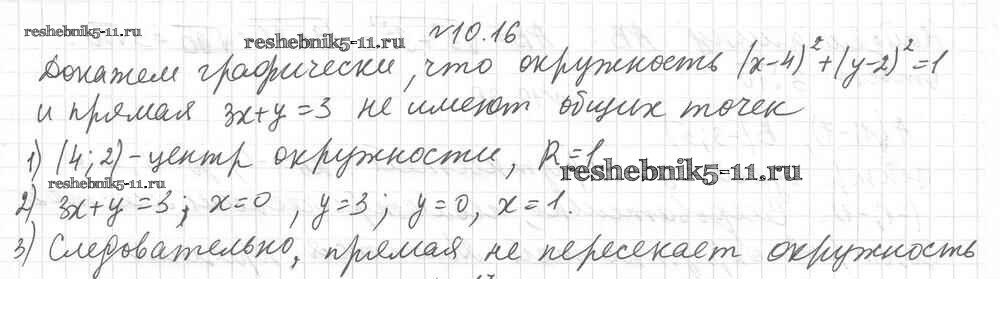 reshebnik5-11.ru
reshebnik5-11.ru
№10.16
Докажем графически, что окружность (x-4)²+(y-2)²=1
и прямая 3x+y=3 не имеют общих точек
1) (4;2)-центр окружности, R=1
reshebnik5-11.ru
reshebnik5-11.ru
2) 3x+y=3; x=0, y=3; y=0, x=1.
3) Следовательно, прямая не пересекает окружность